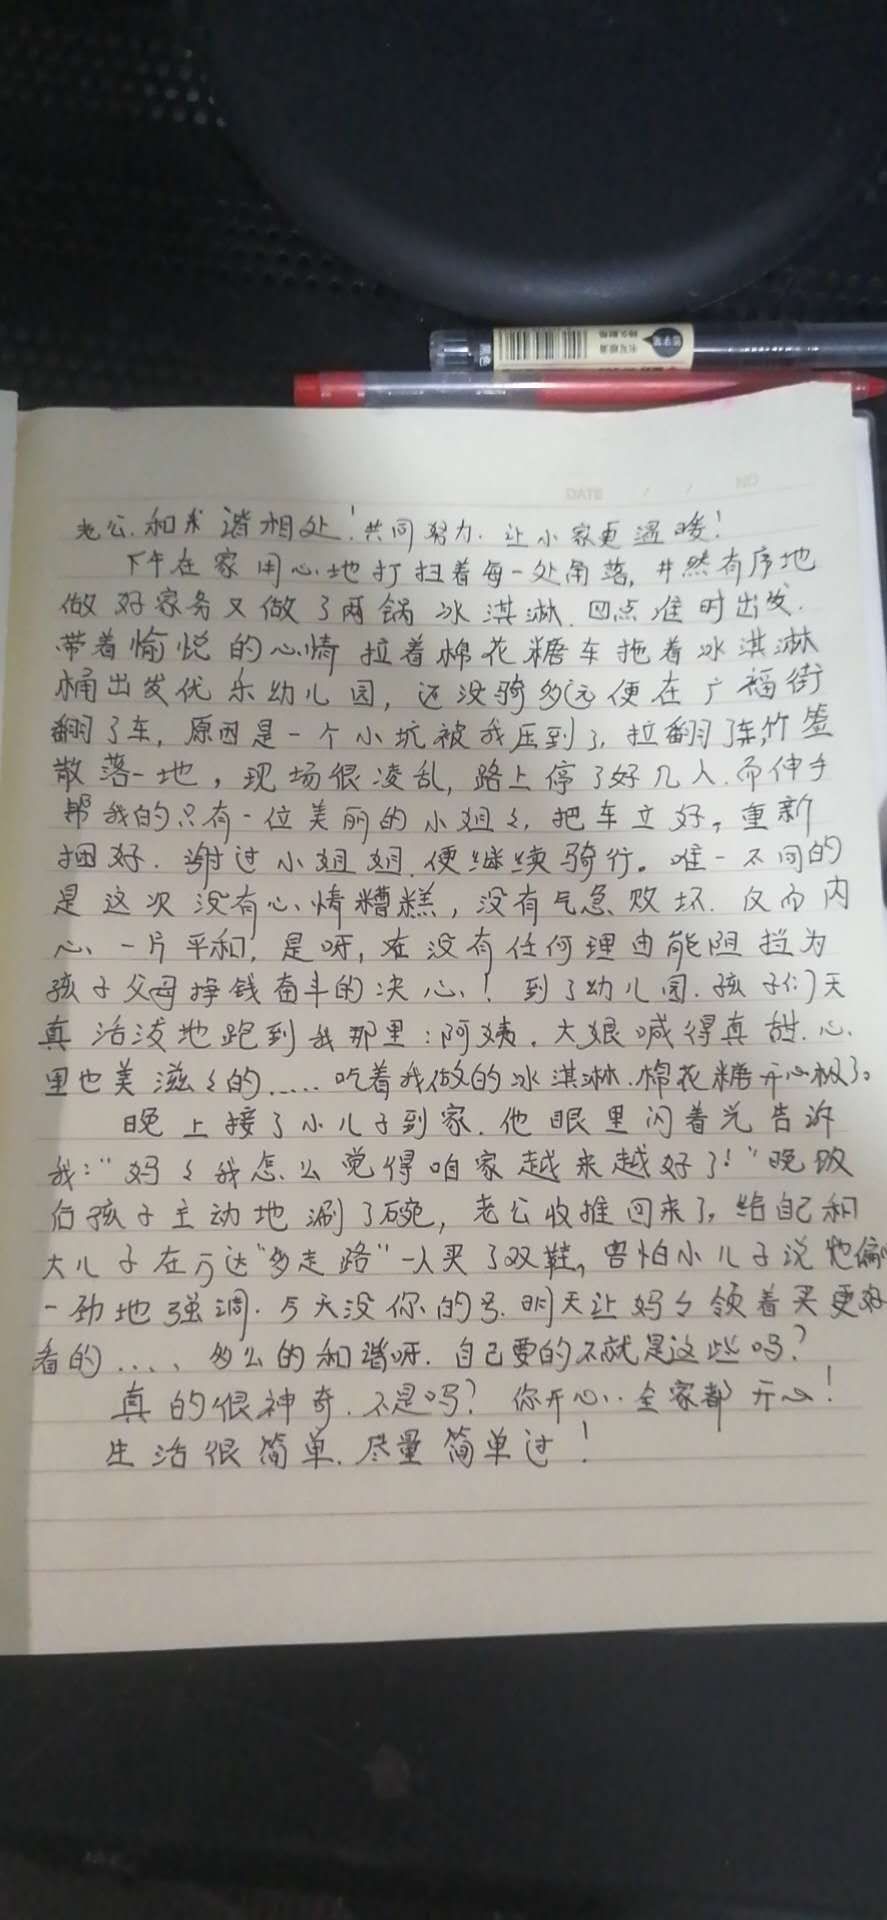 DATE / / NO
老公.和求谐相处!共同努力.让小家更温暖!
下午在家用心地打扫着每一处角落,井然有序地
做好家务又做了两锅冰淇淋.四点准时出发.
带着愉悦的心情拉着棉花糖车拖着冰淇淋
桶出发优乐幼儿园,还没骑多远便在广福街
翻了车,原因是一个小坑被我压到了,拉翻了车,竹签
散落一地,现场很凌乱,路上停了好几人.而伸手
帮我的只有一位美丽的小姐々,把车立好,重新
捆好.谢过小姐姐.便继续骑行。唯一不同的
是这次没有心情糟糕,没有气急败坏.反而内
心一片平和,是呀,在没有任何理由能阻拦为
孩子父母挣钱奋斗的决心!到了幼儿园.孩子们天
真活泼地跑到我那里:阿姨.大娘喊得真甜.心
里也美滋々的.....吃着我做的冰淇淋.棉花糖开心极了。
晚上接了小儿子到家.他眼里闪着光告诉
我:"妈々我怎么觉得咱家越来越好了!"晚饭
后孩子主动地涮了碗,老公收摊回来了,给自己和
大儿子在万达"多走路"一人买了双鞋,害怕小儿子说他偏心
一劲地强调.今天没你的号.明天让妈々领着买更好
看的....、多么的和谐呀.自己要的不就是这些吗?
真的很神奇.不是吗?你开心..全家都开心!
生活很简单.尽量简单过!